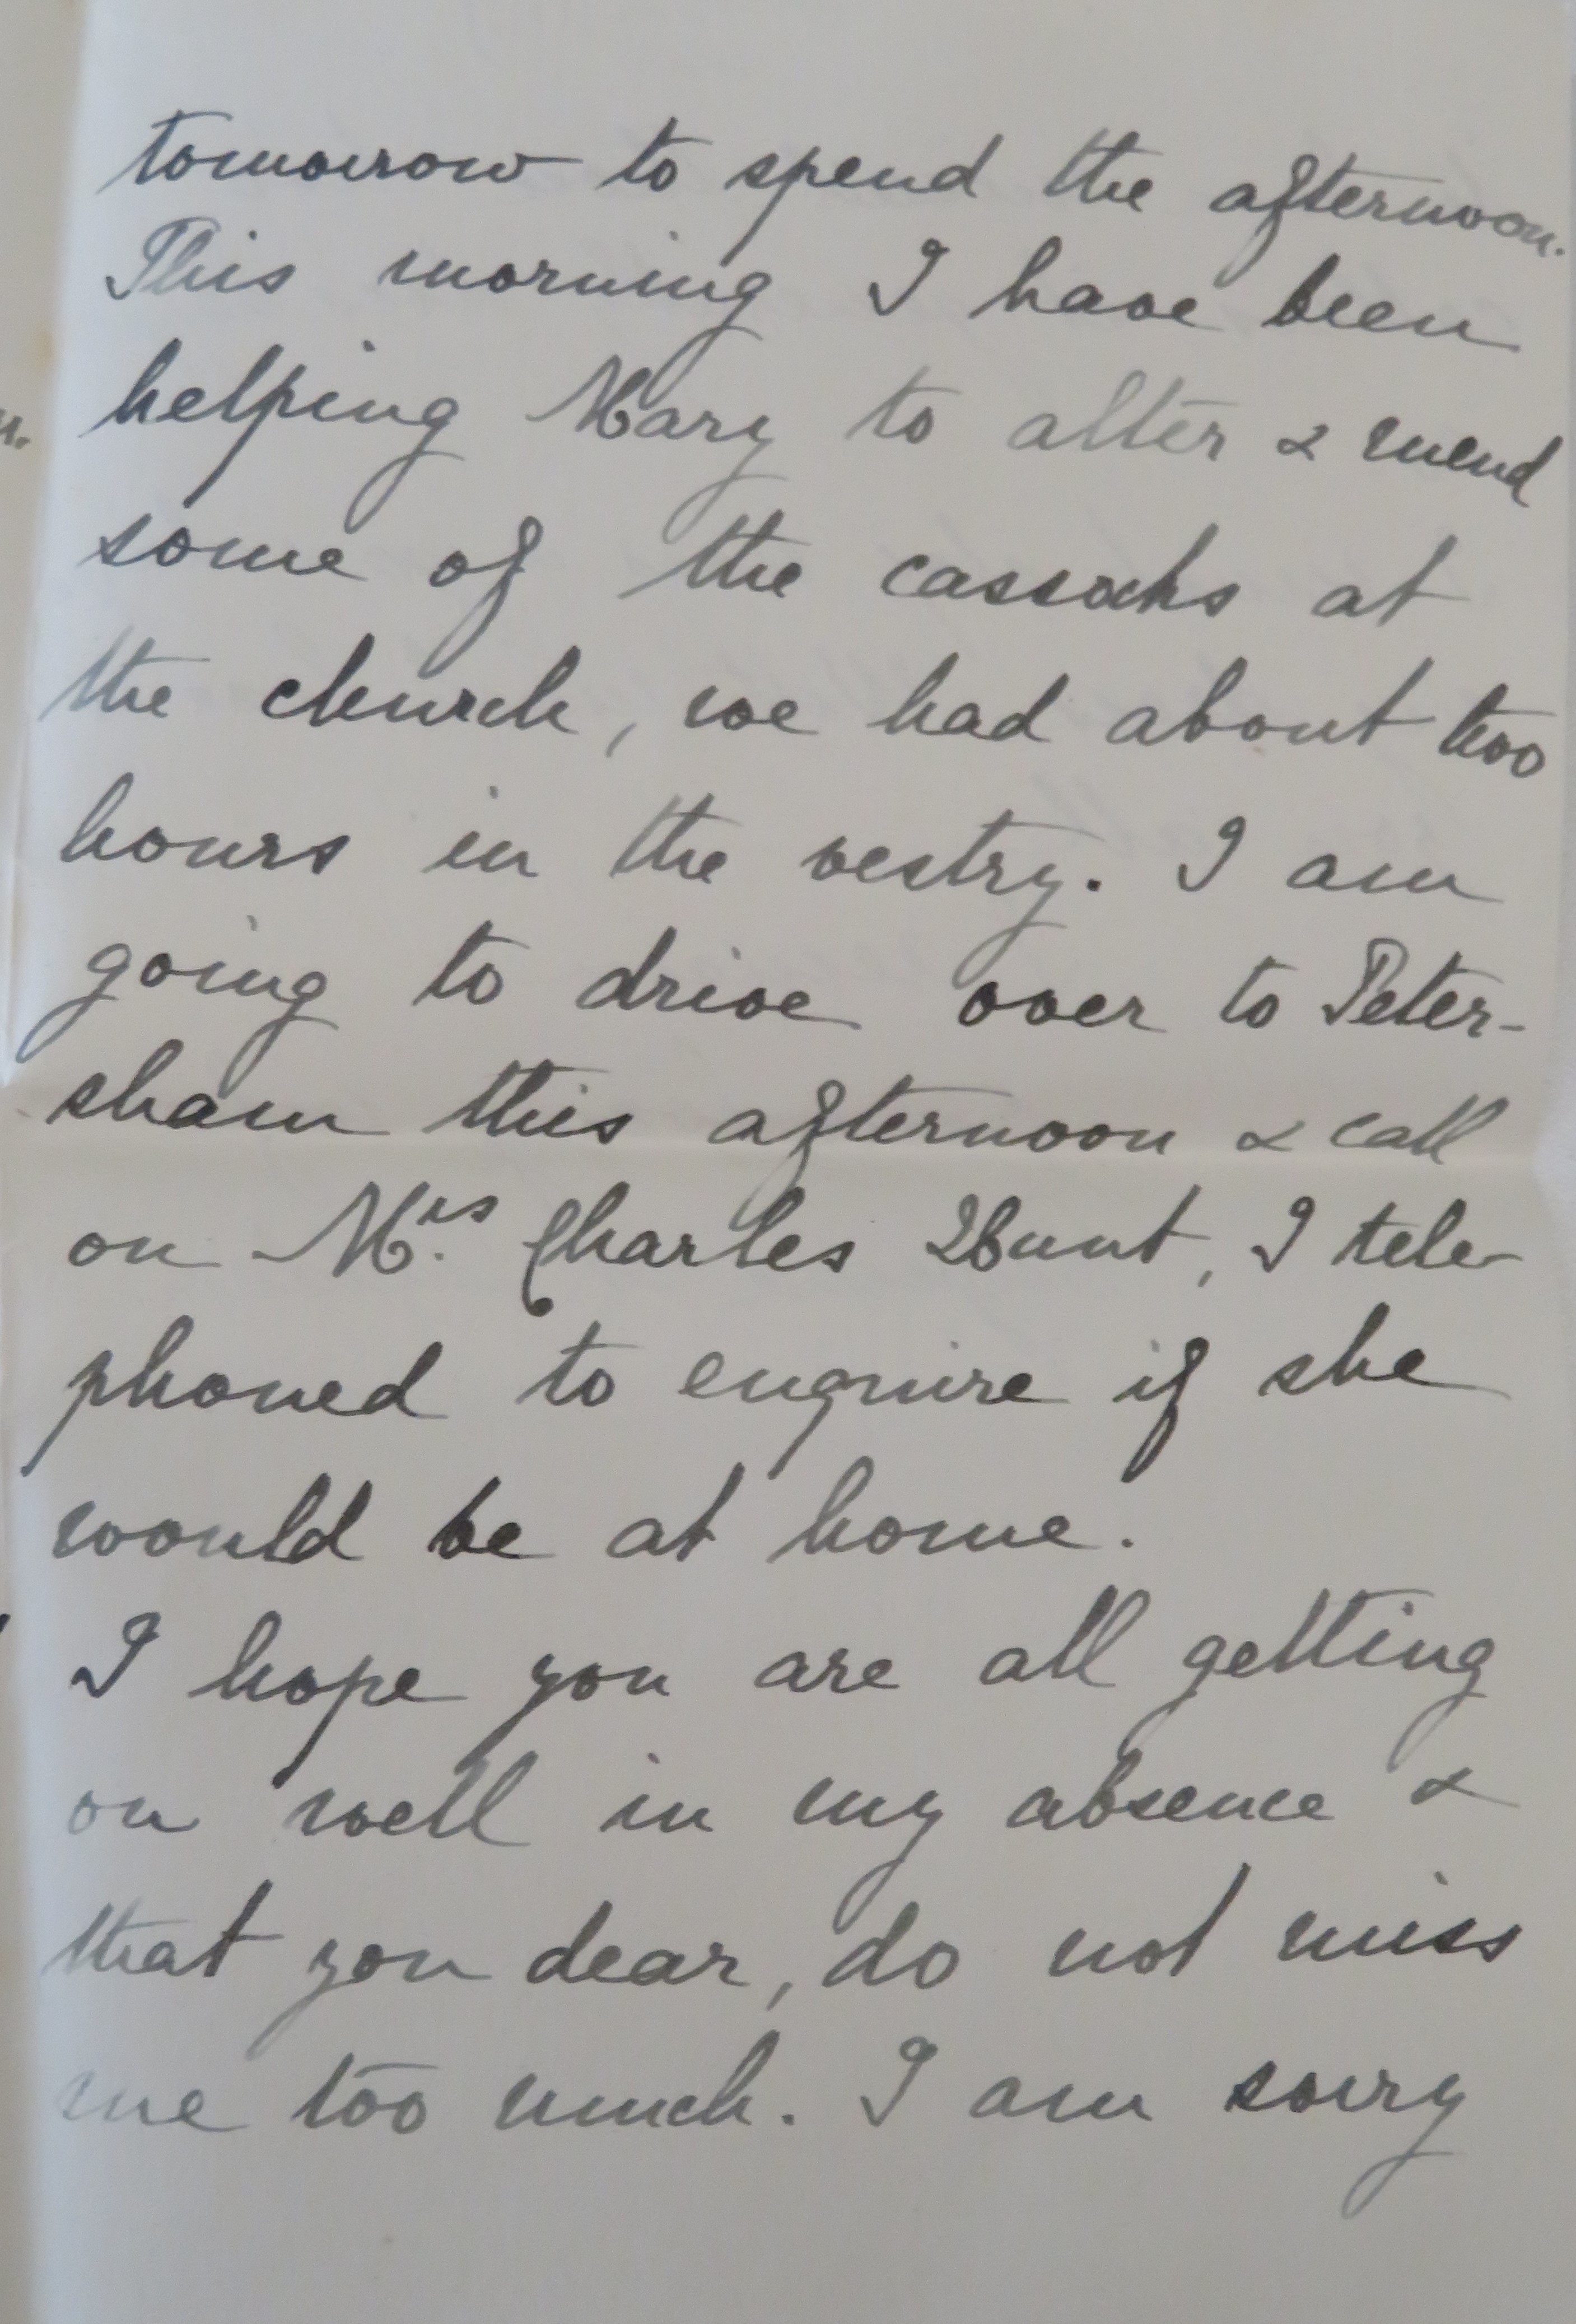 tomorrow to spend the afternoon.
This morning I have been
helping Mary to alter & mend
some of the cassocks at
the church, we had about two
hours in the vestry. I am
going to drive over to Peter-
sham this afternoon & call
on Mrs. Charles Hunt, I tele-
phoned to enquire if she
would be at home.
I hope you are all getting
on well in my absence &
that you dear, do not miss
me too much. I am sorry